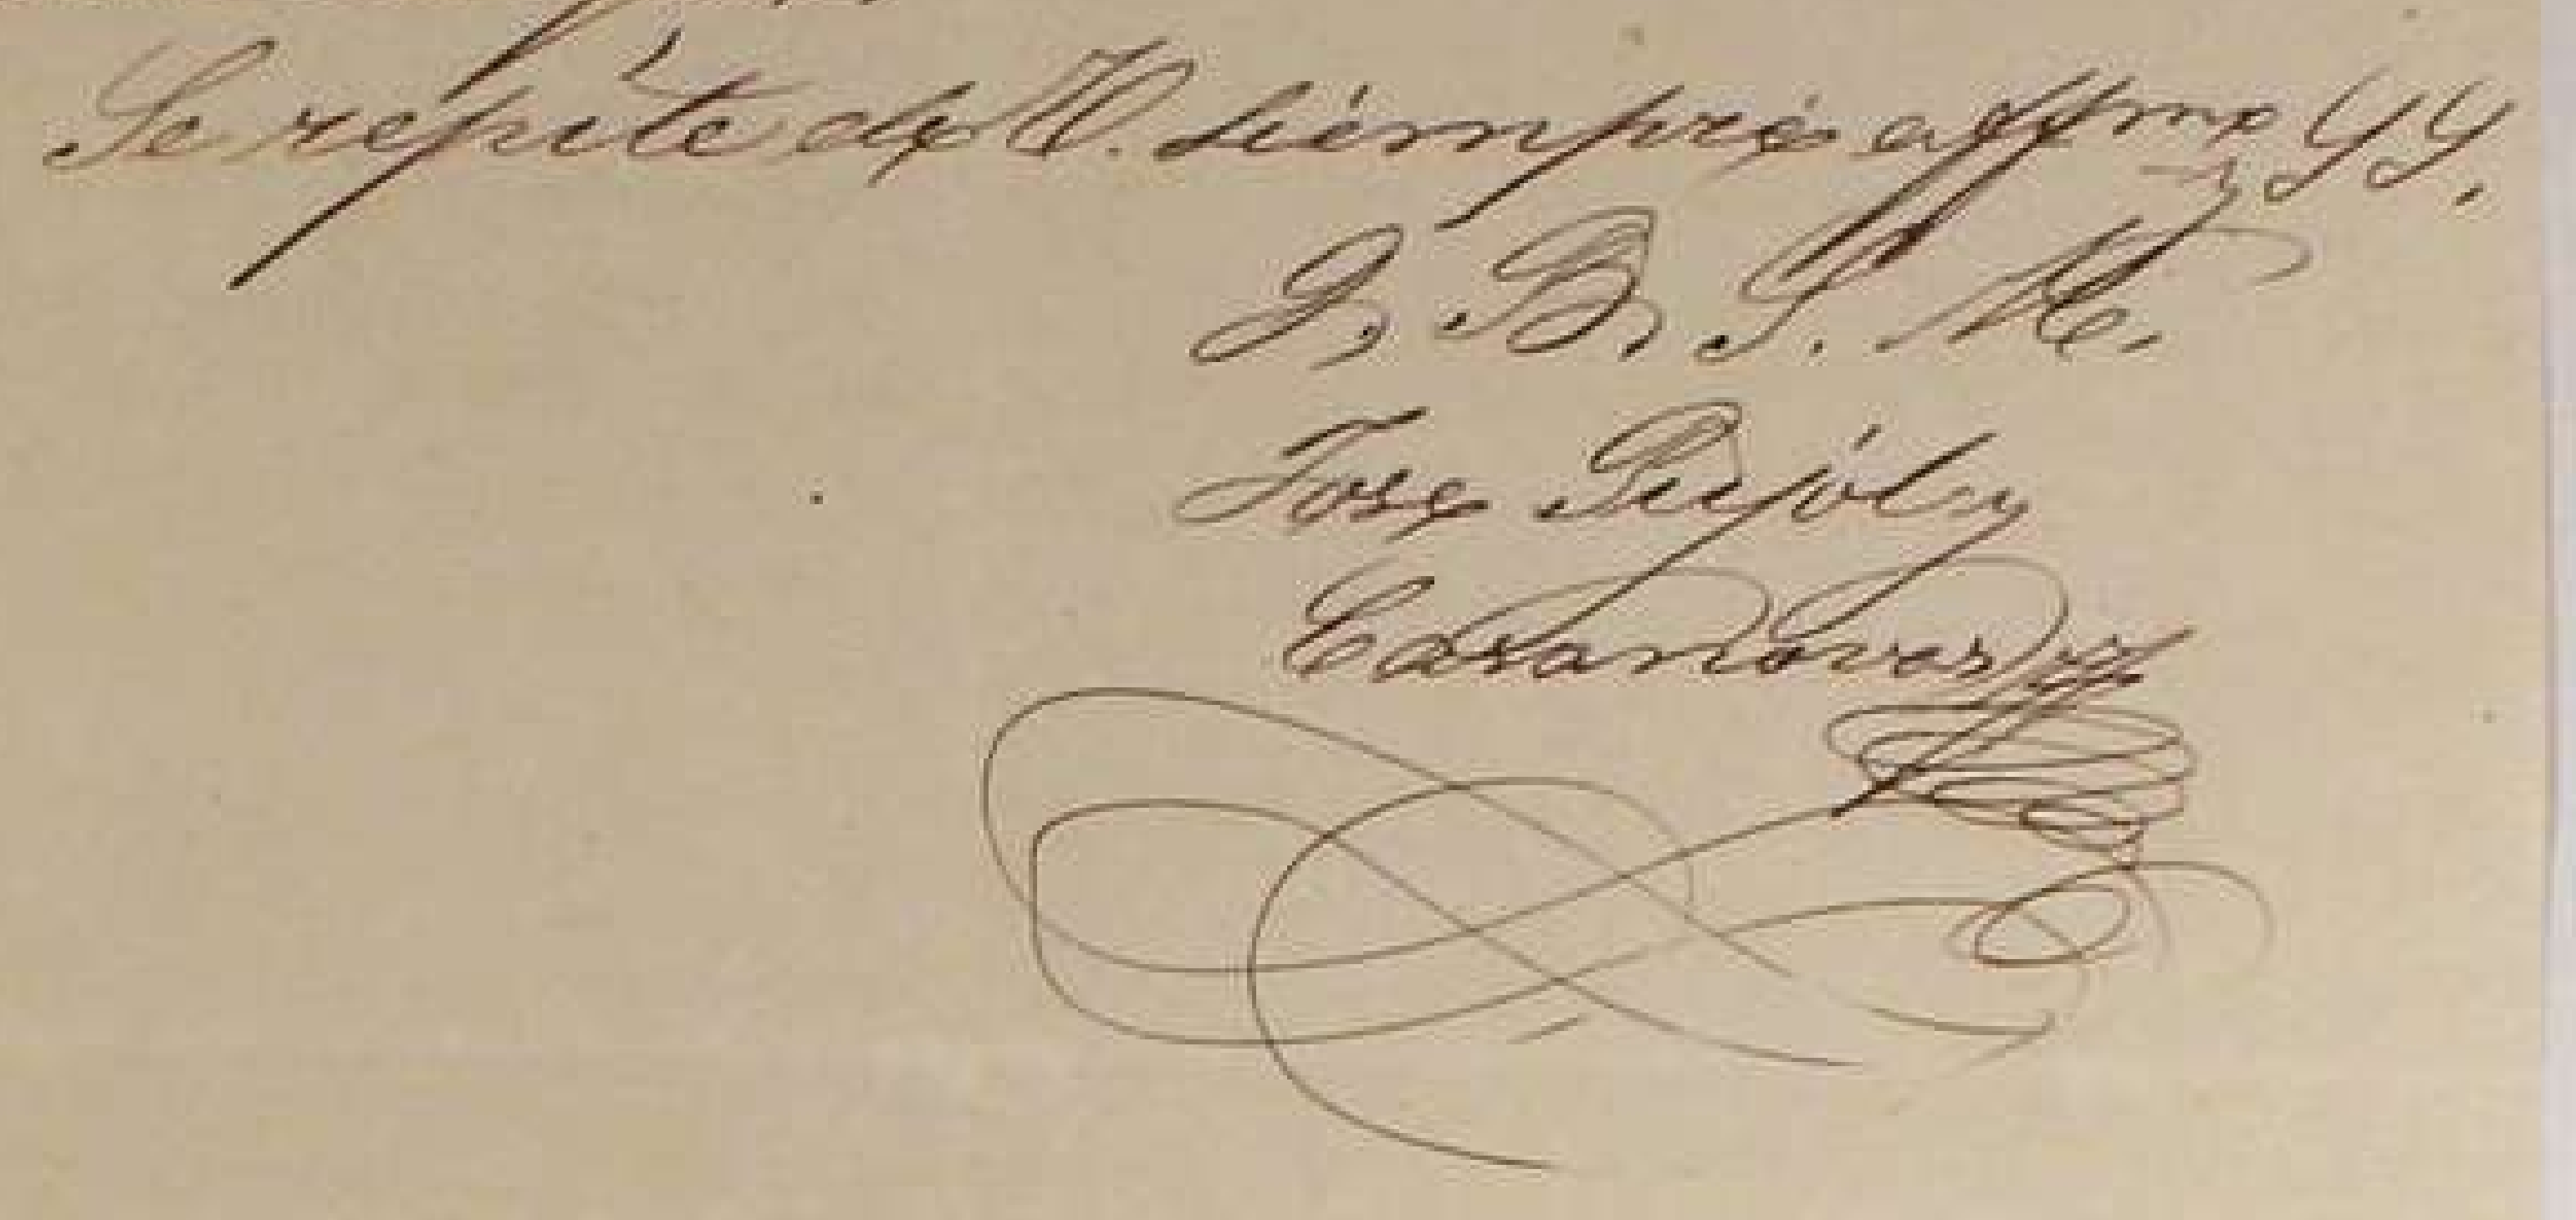 Se repite de V. siempre affmo y S.S.
Q. B. S. M.
Jose Pujol y
Casanovas